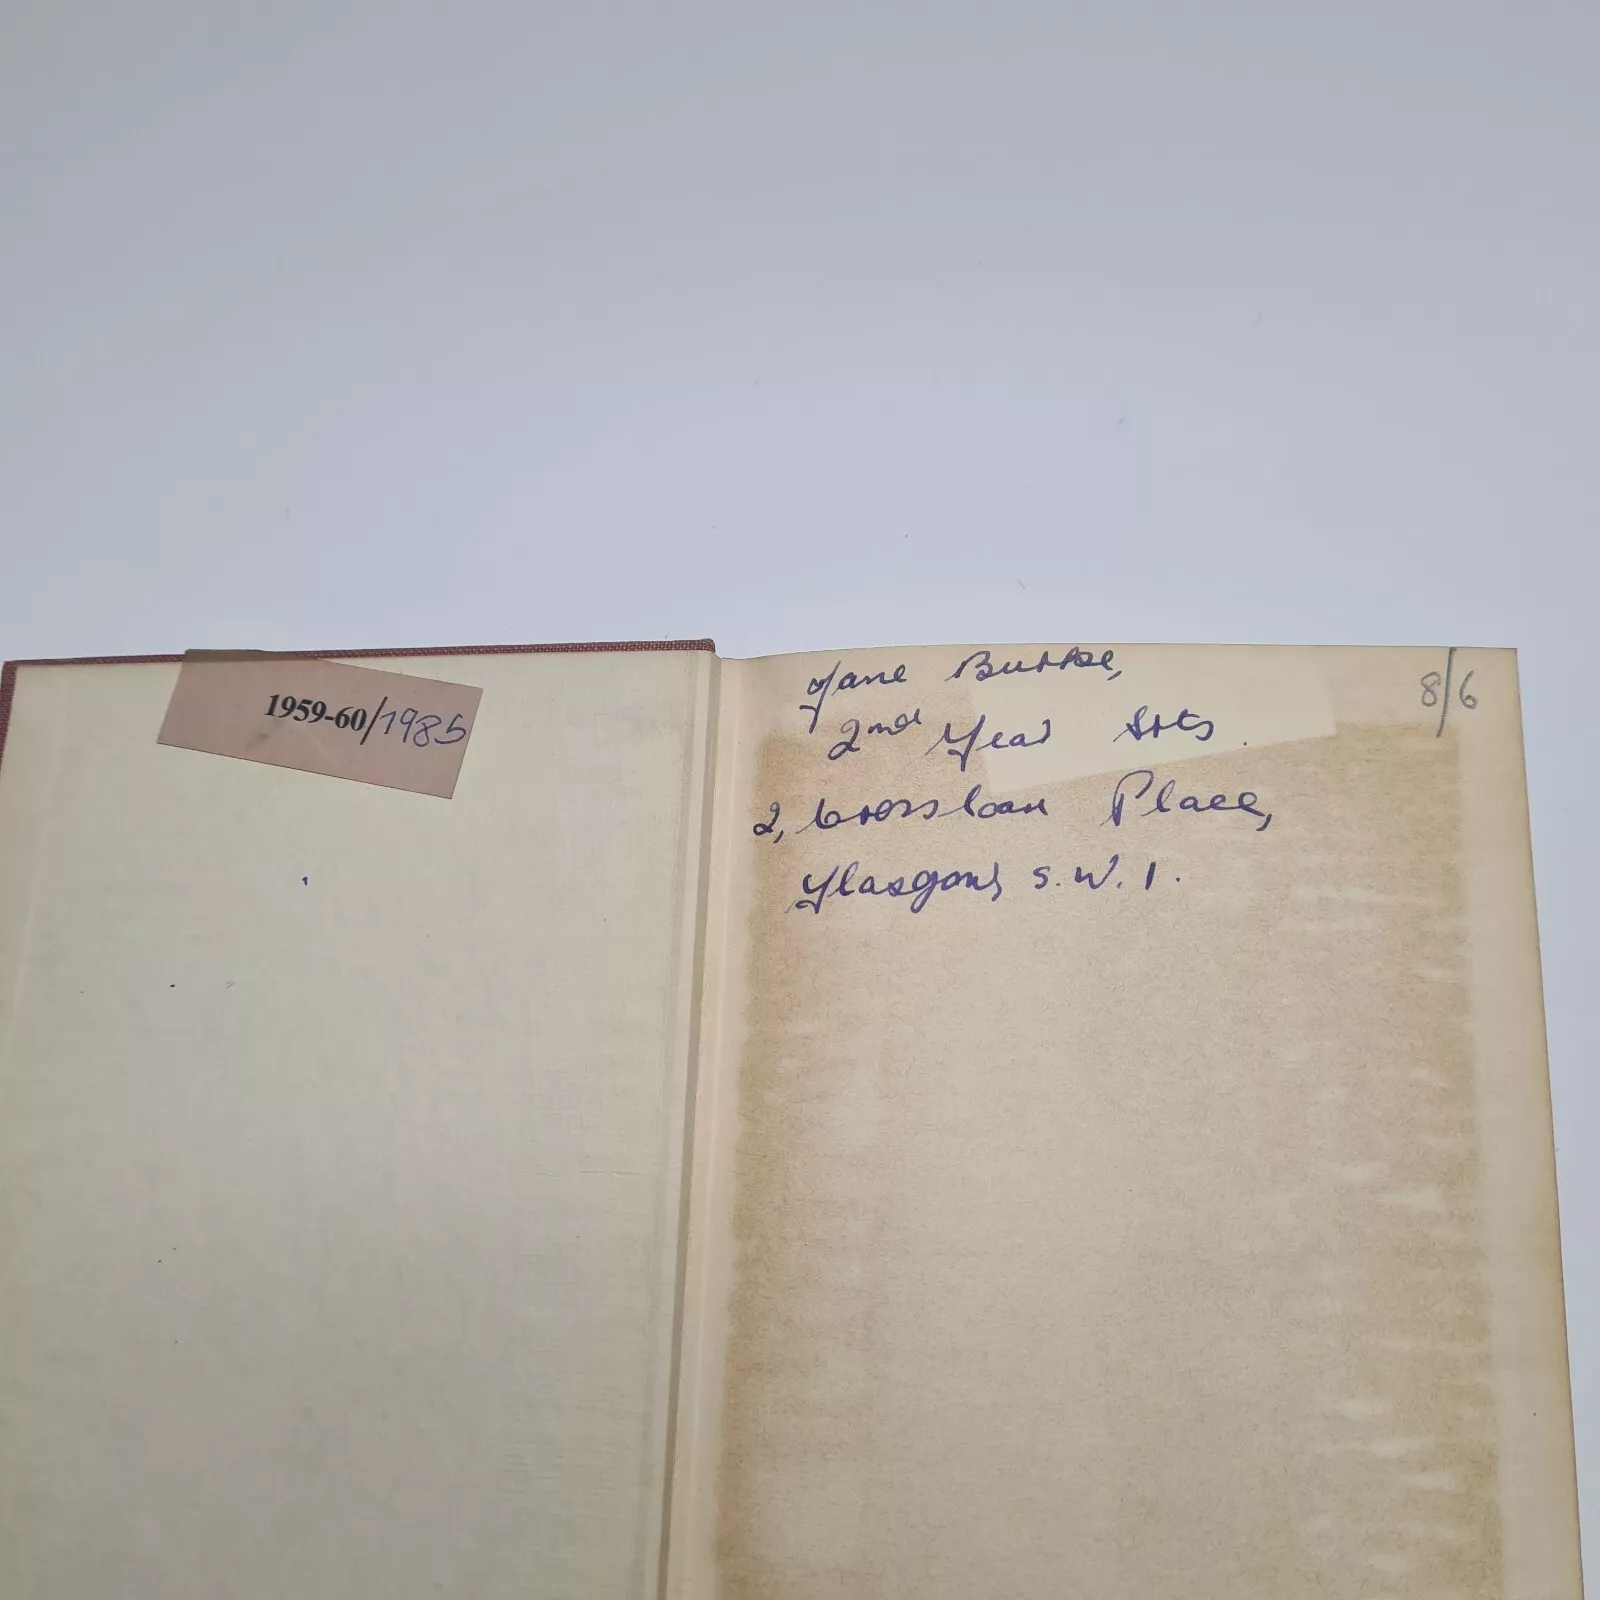 1959-60/1985
8/6
Jane Burke,
2nd Year Arts.
2, Corsloan Place,
Glasgow, S.W.1.